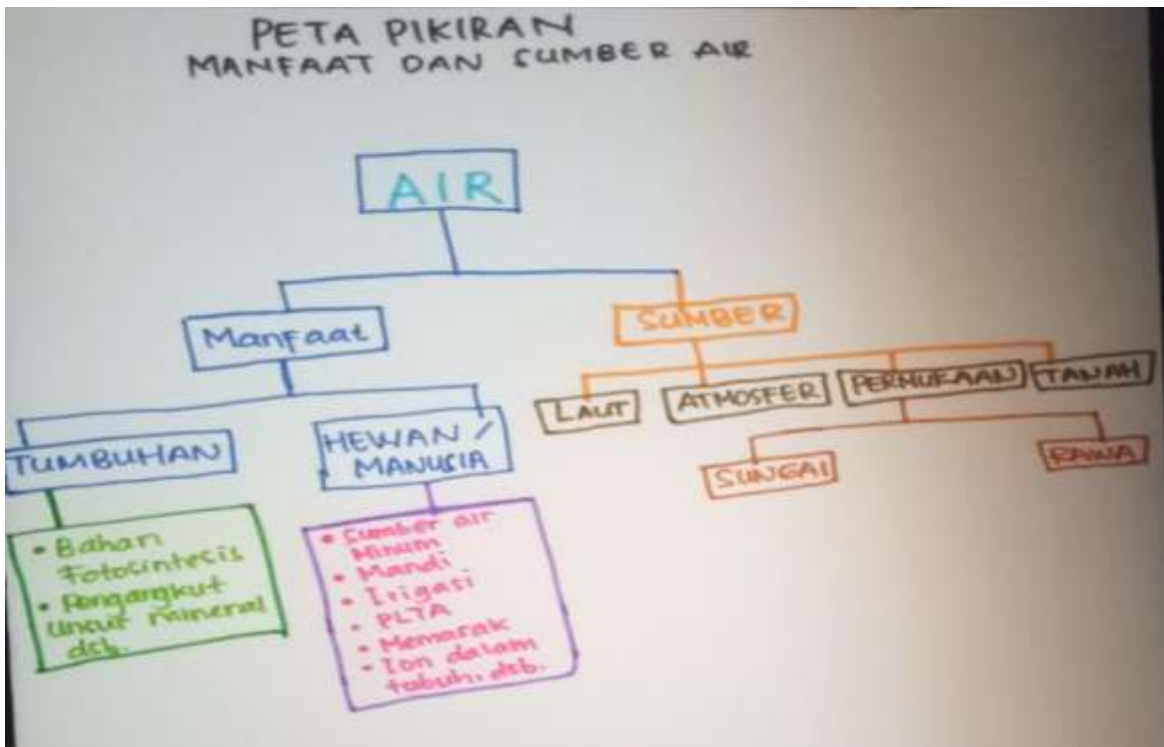 PETA PIKIRAN
MANFAAT DAN SUMBER AIR
AIR
Manfaat
SUMBER
TUMBUHAN
HEWAN /
MANUSIA
LAUT
ATMOSFER
PERMUKAAN
TANAH
SUNGAI
RAWA
• Bahan
Fotosintesis
• Pengangkut
Unsur mineral
dsb.
• Sumber air
Minum
• Mandi
• Irigasi
• PLTA
• Memasak
• Ion dalam
tubuh, dsb.